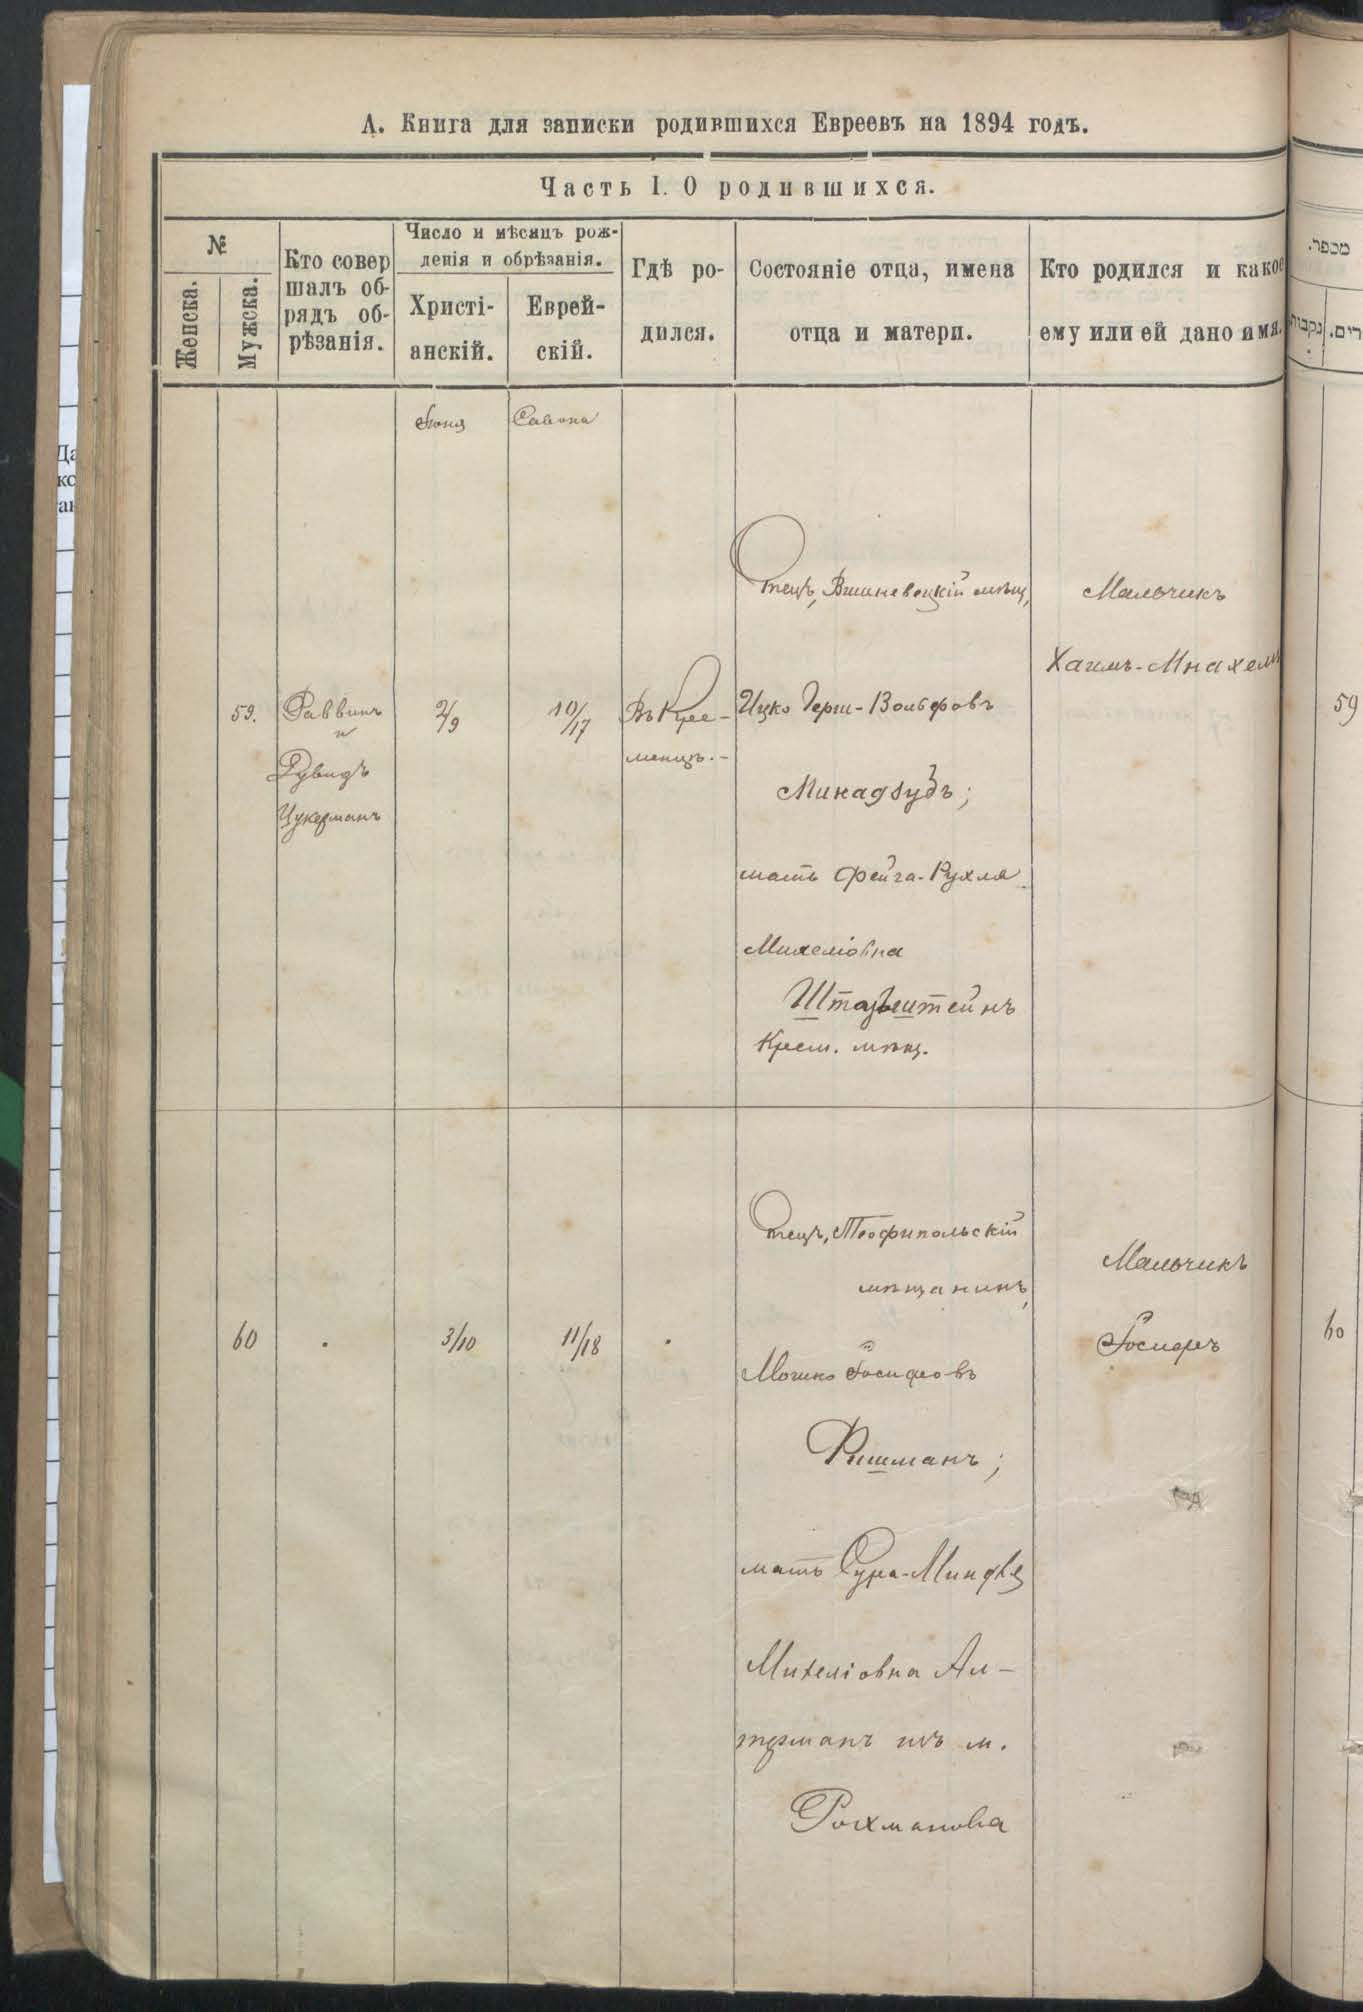 А. Книга для записки родившихся Евреевъ на 1894 годъ.
Часть I. О родившихся.
№
Женска.
Мужска.
Кто совер
шалъ об-
рядъ об-
рѣзанія.
Число и мѣсяцъ рож-
денія и обрѣзанія.
Христі-
анскій.
Еврей-
скій.
Гдѣ ро-
дился.
Состояніе отца, имена
отца и матери.
Кто родился и какое
ему или ей дано имя.
מספר.
נקבות.
רים.
Іюня
Сивона
59.
Раввинъ
и
Рувидъ
Цукерманъ
2/9
10/17
Въ Кре-
менцѣ.-
Отецъ, Вишневецкій мѣщ,
Ицко Герш-Вольфовъ
мать Фейга-Рухля
Михеліовна
Штазьштейнъ
Крем. мѣщ.
Мальчикъ
Хаимъ-Мнахемъ
59
60
3/10
11/18
Отецъ, Теофипольскій
мѣщанинъ,
Мошко Іосифовъ
Ришманъ;
мать Сура-Миндля
Михеліовна Ал-
терманъ изъ м.
Рохманова
Мальчикъ
Іосифъ
60